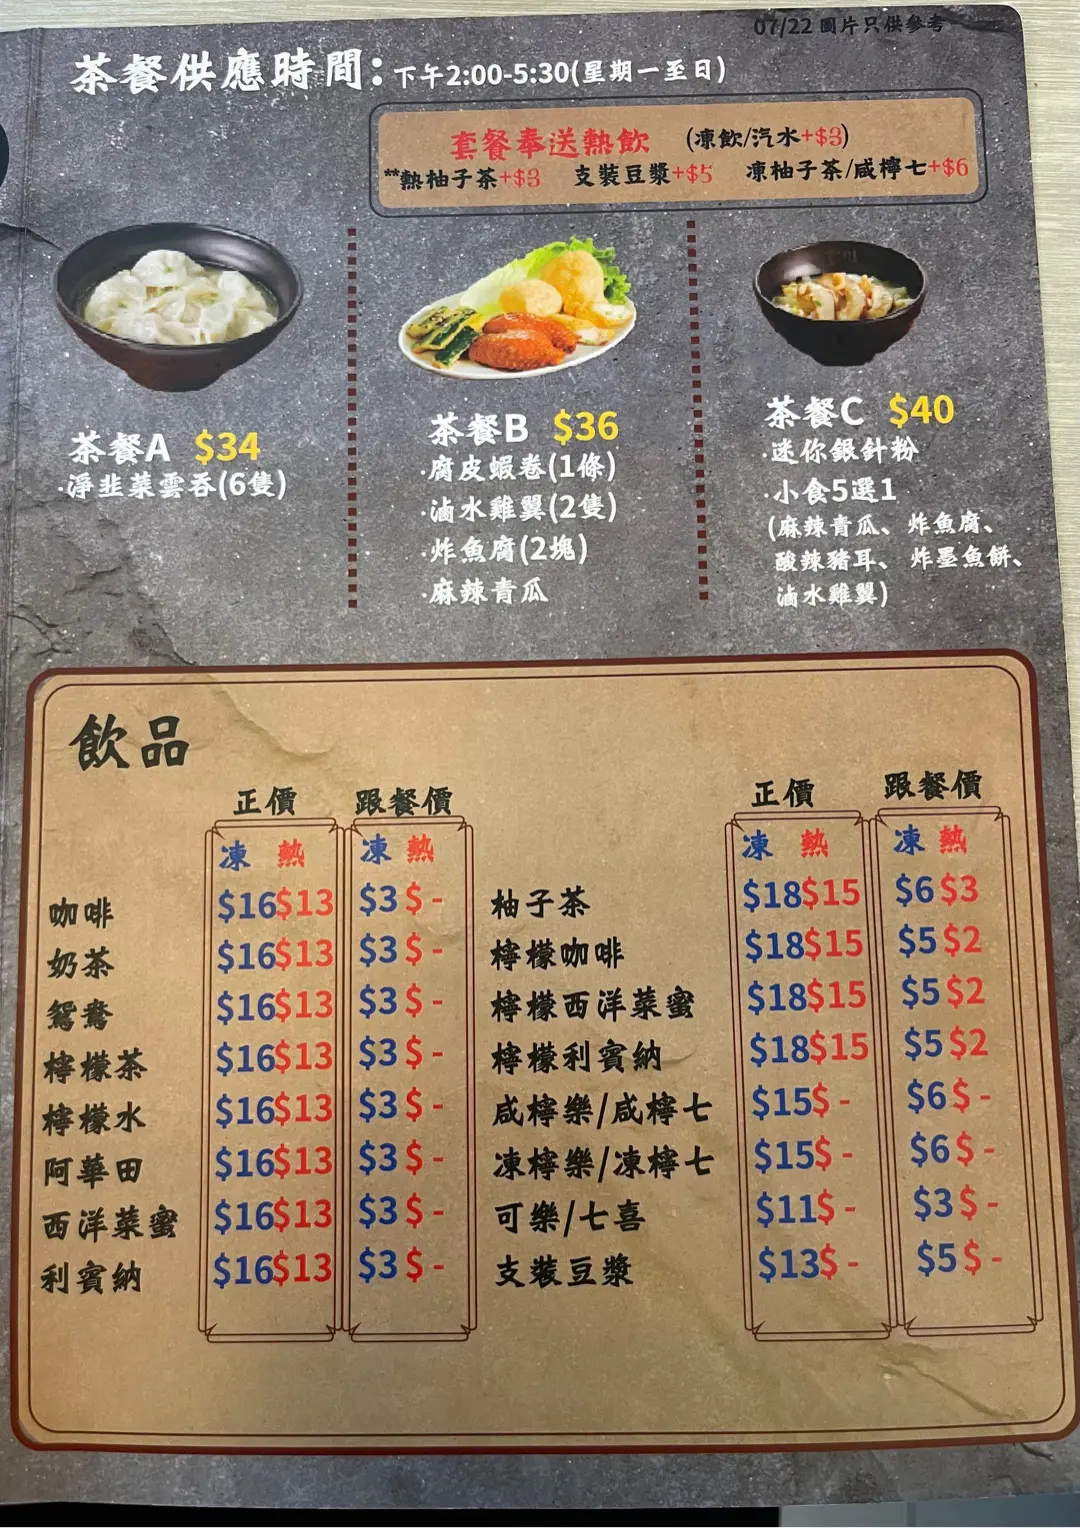 07/22 圖片只供參考
茶餐供應時間：下午2:00-5:30(星期一至日)
套餐奉送熱飲 (凍飲/汽水+$3)
**熱柚子茶+$3 支裝豆漿+$5 凍柚子茶/咸檸七+$6
茶餐A $34
·淨韭菜雲吞(6隻)
茶餐B $36
·腐皮蝦卷(1條)
·滷水雞翼(2隻)
·炸魚腐(2塊)
·麻辣青瓜
茶餐C $40
·迷你銀針粉
·小食5選1
(麻辣青瓜、炸魚腐、
酸辣豬耳、炸墨魚餅、
滷水雞翼)
飲品
正價 跟餐價
凍 熱 凍 熱
咖啡 $16 $13 $3 $ -
奶茶 $16 $13 $3 $ -
鴛鴦 $16 $13 $3 $ -
檸檬茶 $16 $13 $3 $ -
檸檬水 $16 $13 $3 $ -
阿華田 $16 $13 $3 $ -
西洋菜蜜 $16 $13 $3 $ -
利賓納 $16 $13 $3 $ -
正價 跟餐價
凍 熱 凍 熱
柚子茶 $18 $15 $6 $3
檸檬咖啡 $18 $15 $5 $2
檸檬西洋菜蜜 $18 $15 $5 $2
檸檬利賓納 $18 $15 $5 $2
咸檸樂/咸檸七 $15 $ - $6 $ -
凍檸樂/凍檸七 $15 $ - $6 $ -
可樂/七喜 $11 $ - $3 $ -
支裝豆漿 $13 $ - $5 $ -